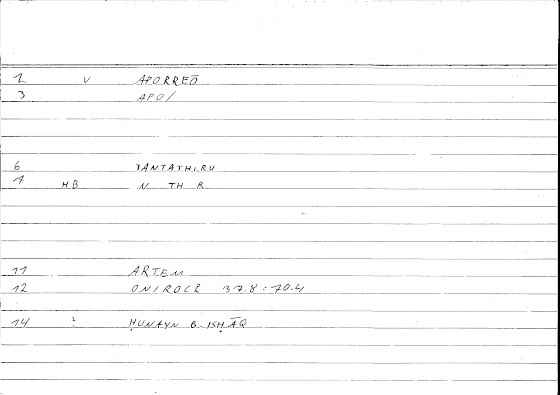 2 V APORREŌ
3 APO/
6 TANTATHIRU
7 HB N TH R
11 ARTEM
12 ONIROCR 37.8 : 70.4
14 ? ḤUNAYN B. ISḤĀQ